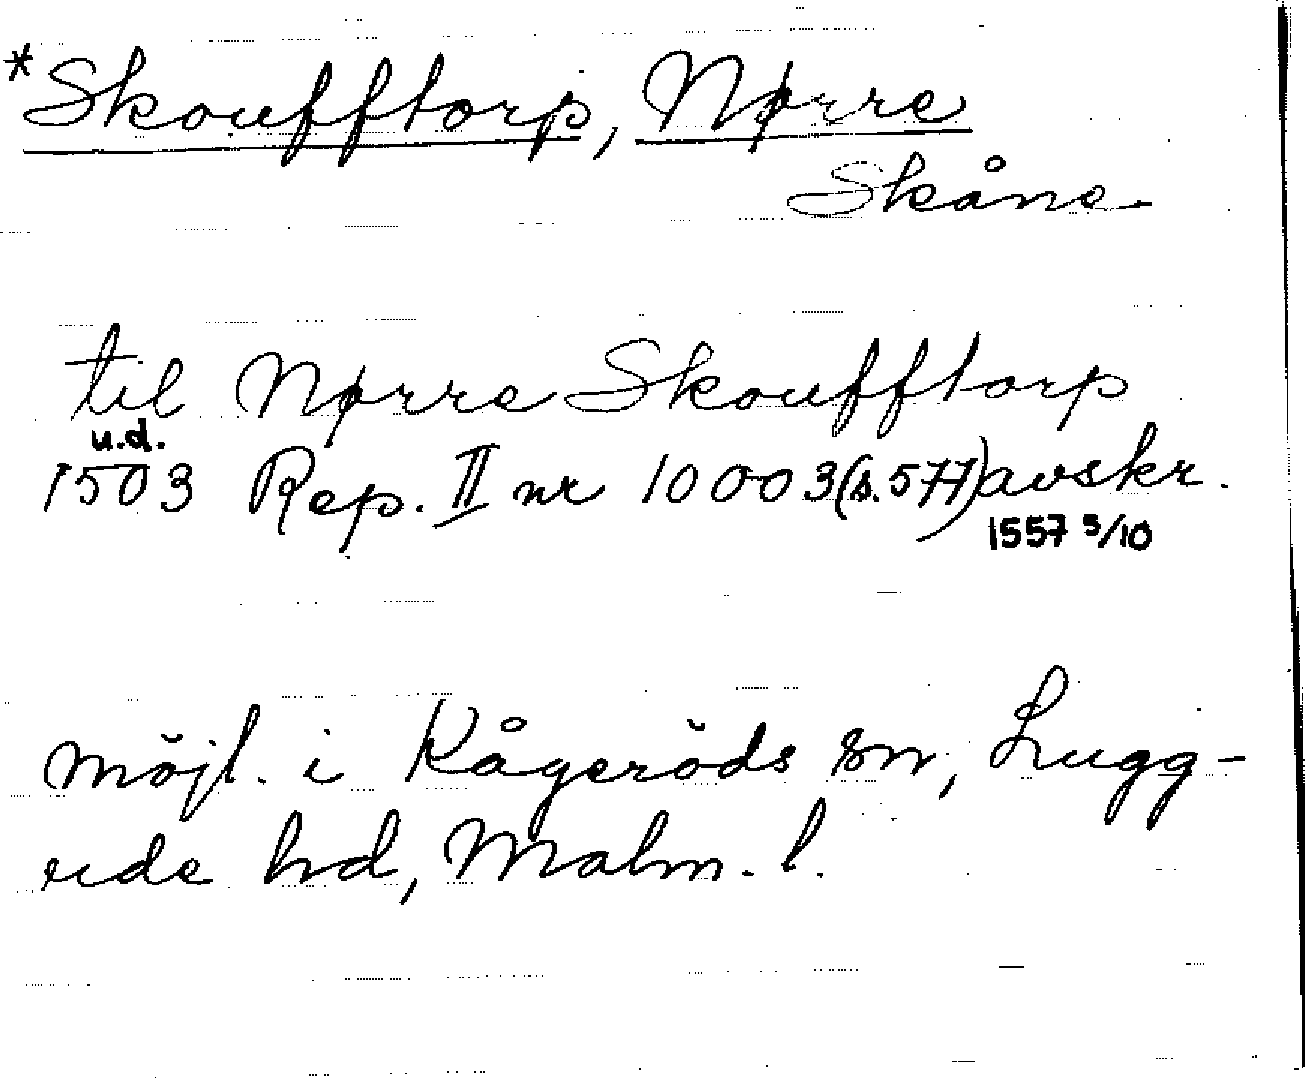 *Skoufftorp, Nørre
Skåne
til Nørre Skoufftorp
u.d.
1503 Rep. II nr 10003 (s. 577) avskr.
1557 5/10
möjl. i Kågeröds sn, Lugg-
ude hd, Malm. l.